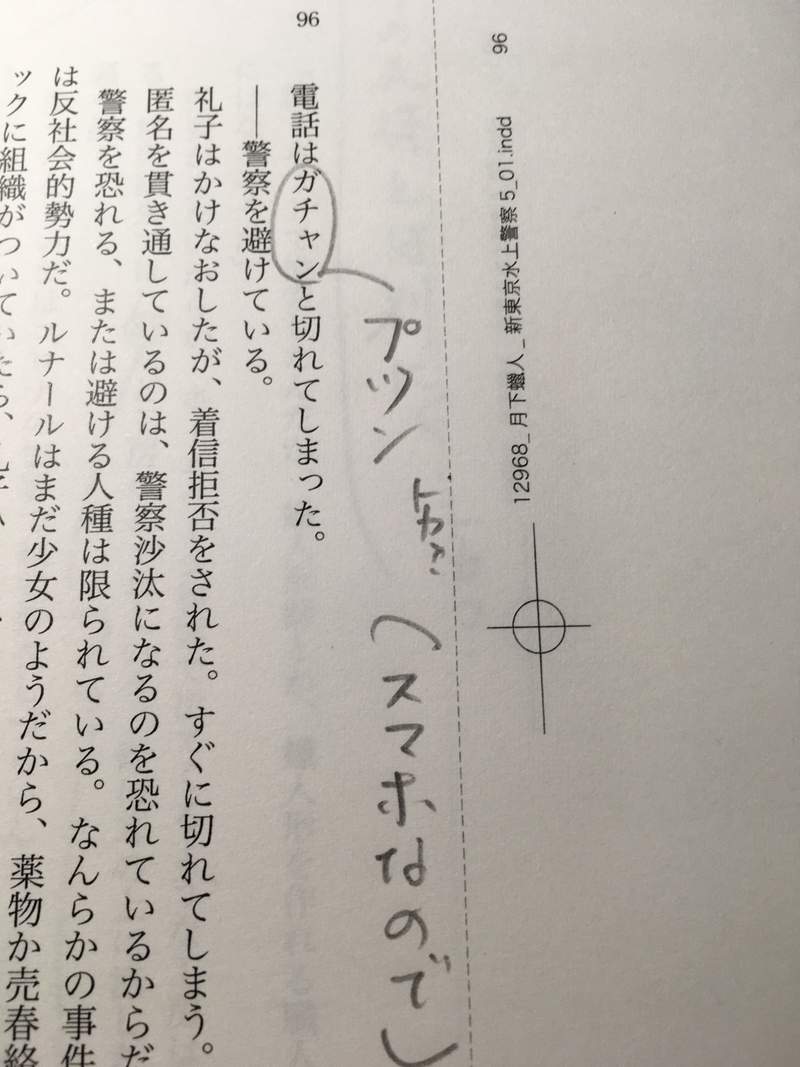 96
12968_月下蠟人_新東京水上警察5_01.indd　96
プツン　とか？　（スマホなので）
電話はガチャンと切れてしまった。
――警察を避けている。
礼子はかけなおしたが、着信拒否をされた。すぐに切れてしまう。
匿名を貫き通しているのは、警察沙汰になるのを恐れているからだ
警察を恐れる、または避ける人種は限られている。なんらかの事件
は反社会的勢力だ。ルナールはまだ少女のようだから、薬物か売春絡
ックに組織がついていたら、